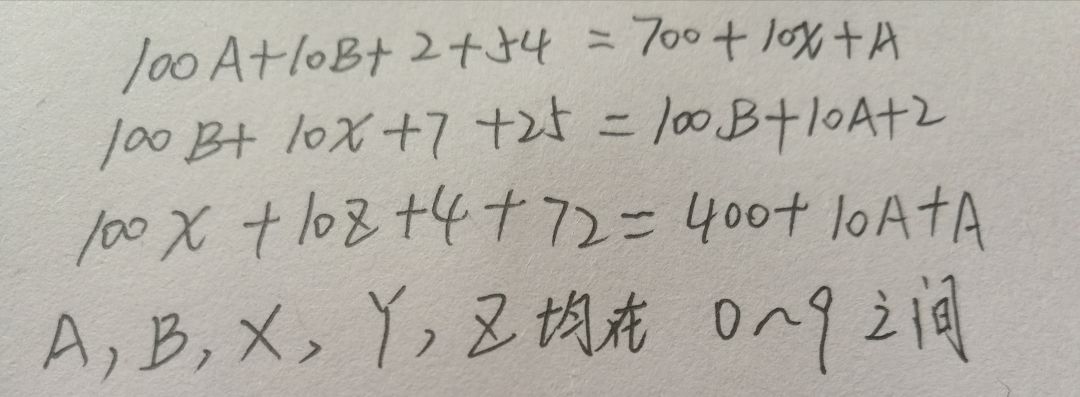 100A+10B+2+54=700+10X+A
100B+10X+7+25=100B+10A+2
100X+10Z+4+72=400+10A+A
A,B,X,Y,Z均在 0~9之间